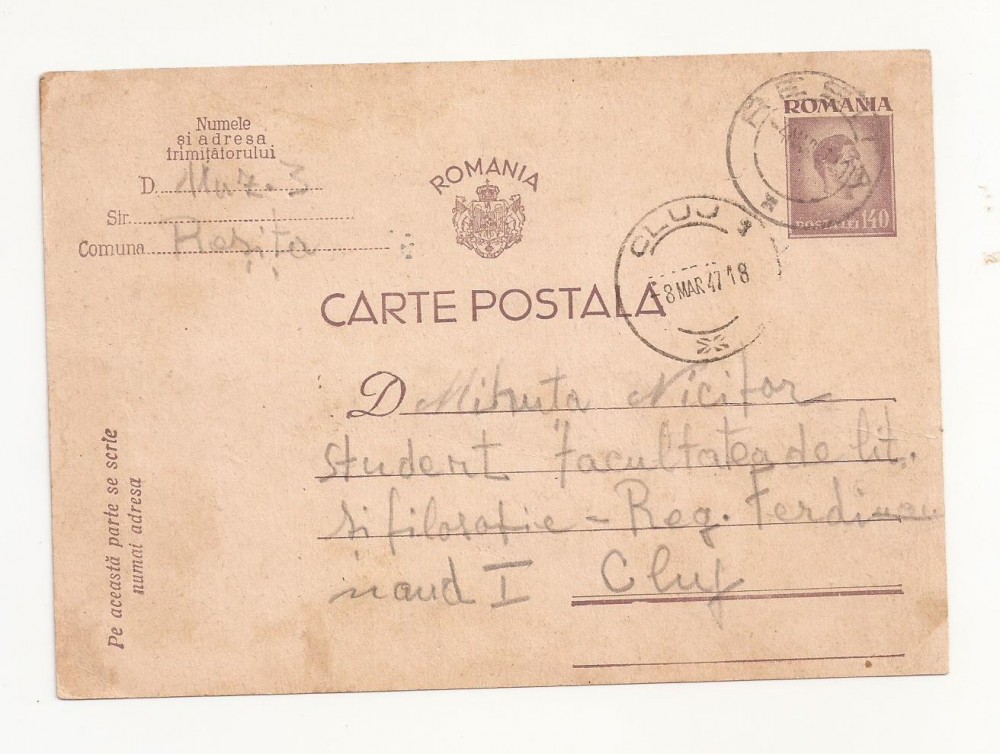 Numele
și adresa
trimițătorului
D. Muz. 3
Str.
Comuna Reșița
ROMANIA
ROMANIA
POSTA LEI 140
CLUJ
8 MAR 47 18
CARTE POSTALA
D Mihuta Nicifor
student Facultatea de lit.
și filosofie - Reg. Ferdinan
nand I Cluj
Pe această parte se scrie
numai adresa